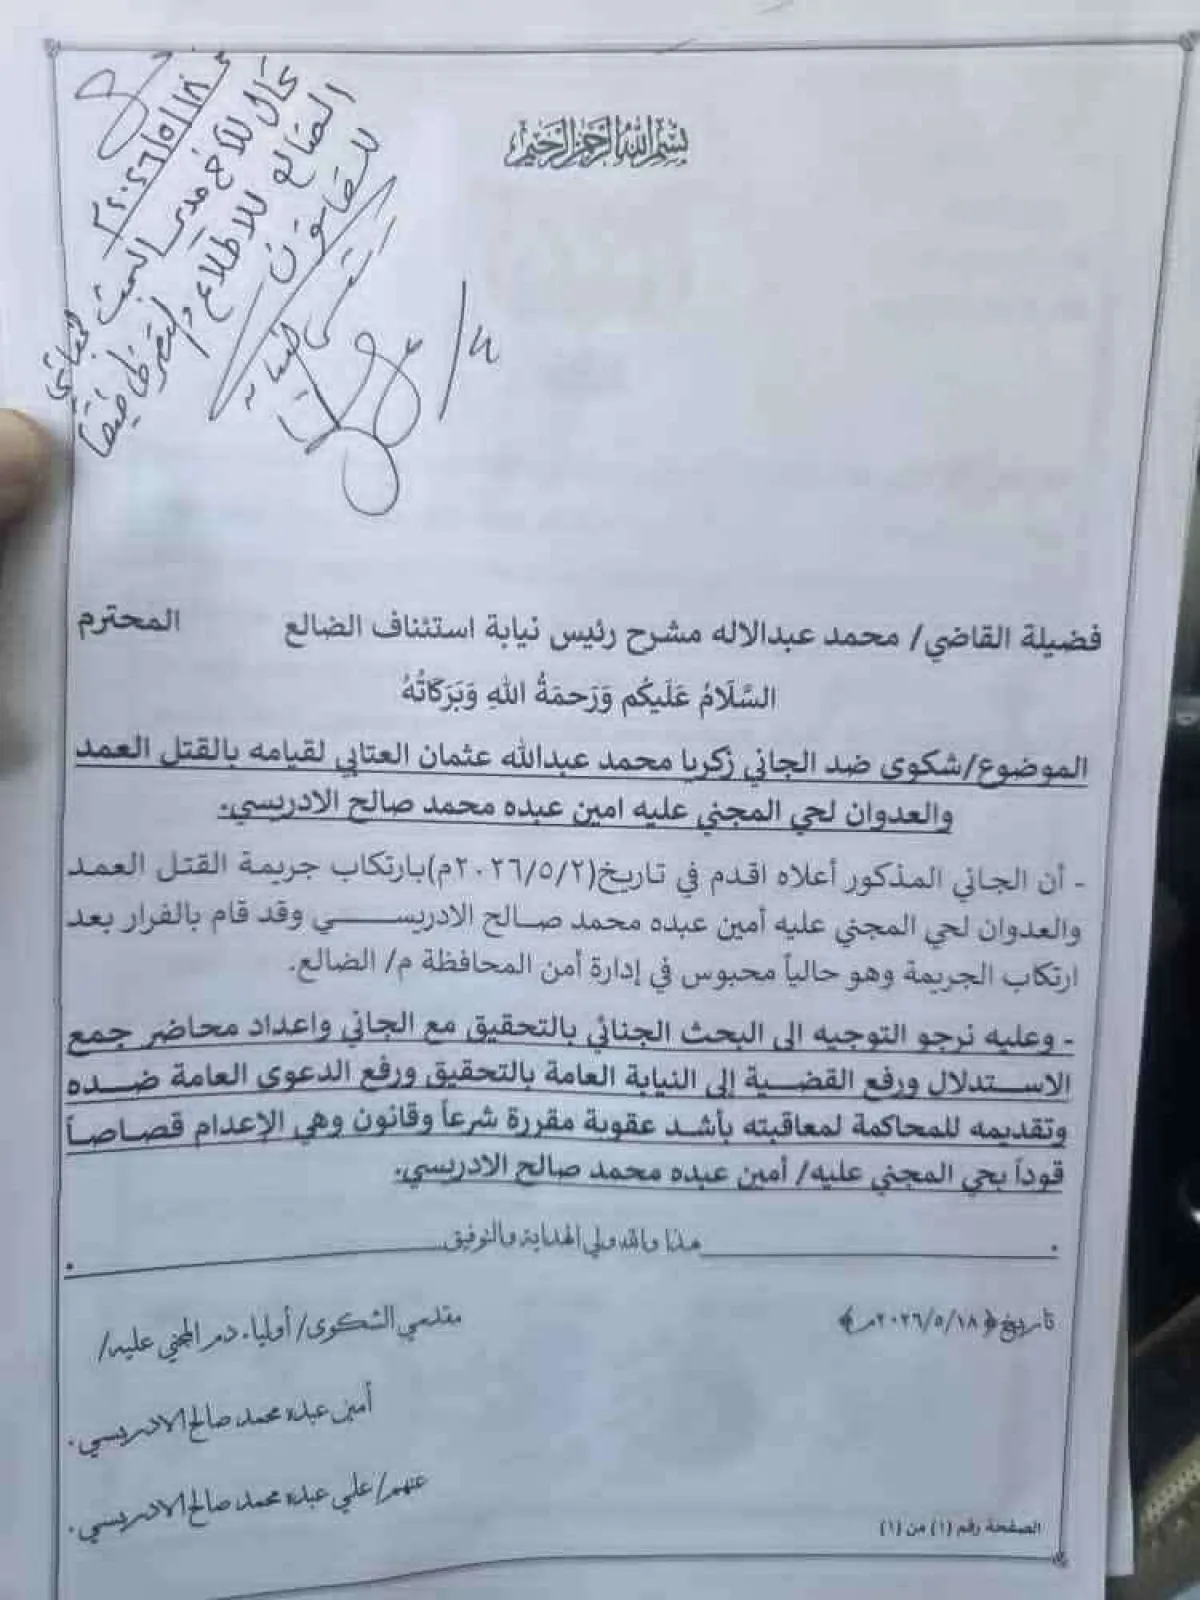 بسم الله الرحمن الرحيم
٢٠٢٦/٥/١٨م
يحال للأخ مدير البحث الجنائي
الضالع للاطلاع والتصرف طبقاً
للقانون
فضيلة القاضي/ محمد عبدالاله مشرح رئيس نيابة استئناف الضالع المحترم
السَّلَامُ عَلَيكُم وَرَحمَةُ اللهِ وَبَرَكَاتُهُ
الموضوع/شكوى ضد الجاني زكريا محمد عبدالله عثمان العتابي لقيامه بالقتل العمد
والعدوان لحي المجني عليه امين عبده محمد صالح الادريسي.
- أن الجاني المذكور أعلاه اقدم في تاريخ(٢٠٢٦/٥/٢م)بارتكاب جريمة القتل العمد
والعدوان لحي المجني عليه أمين عبده محمد صالح الادريســـــي وقد قام بالفرار بعد
ارتكاب الجريمة وهو حالياً محبوس في إدارة أمن المحافظة م/ الضالع.
- وعليه نرجو التوجيه الى البحث الجنائي بالتحقيق مع الجاني واعداد محاضر جمع
الاســـتدلال ورفع القضـــية إلى النيابة العامة بالتحقيق ورفع الدعوى العامة ضـــده
وتقديمه للمحاكمة لمعاقبته بأشد عقوبة مقررة شرعاً وقانون وهي الإعدام قصـاصـاً
قوداً بحي المجني عليه/ أمين عبده محمد صالح الادريسي.
هذا والله ولي الهداية والتوفيق
تاريخ﴿٢٠٢٦/٥/١٨م﴾
مقدمي الشكوى/ أولياء دم المجني عليه/
أمين عبده محمد صالح الادريسي.
عنهم/ علي عبده محمد صالح الادريسي.
الصفحة رقم (١) من (١)